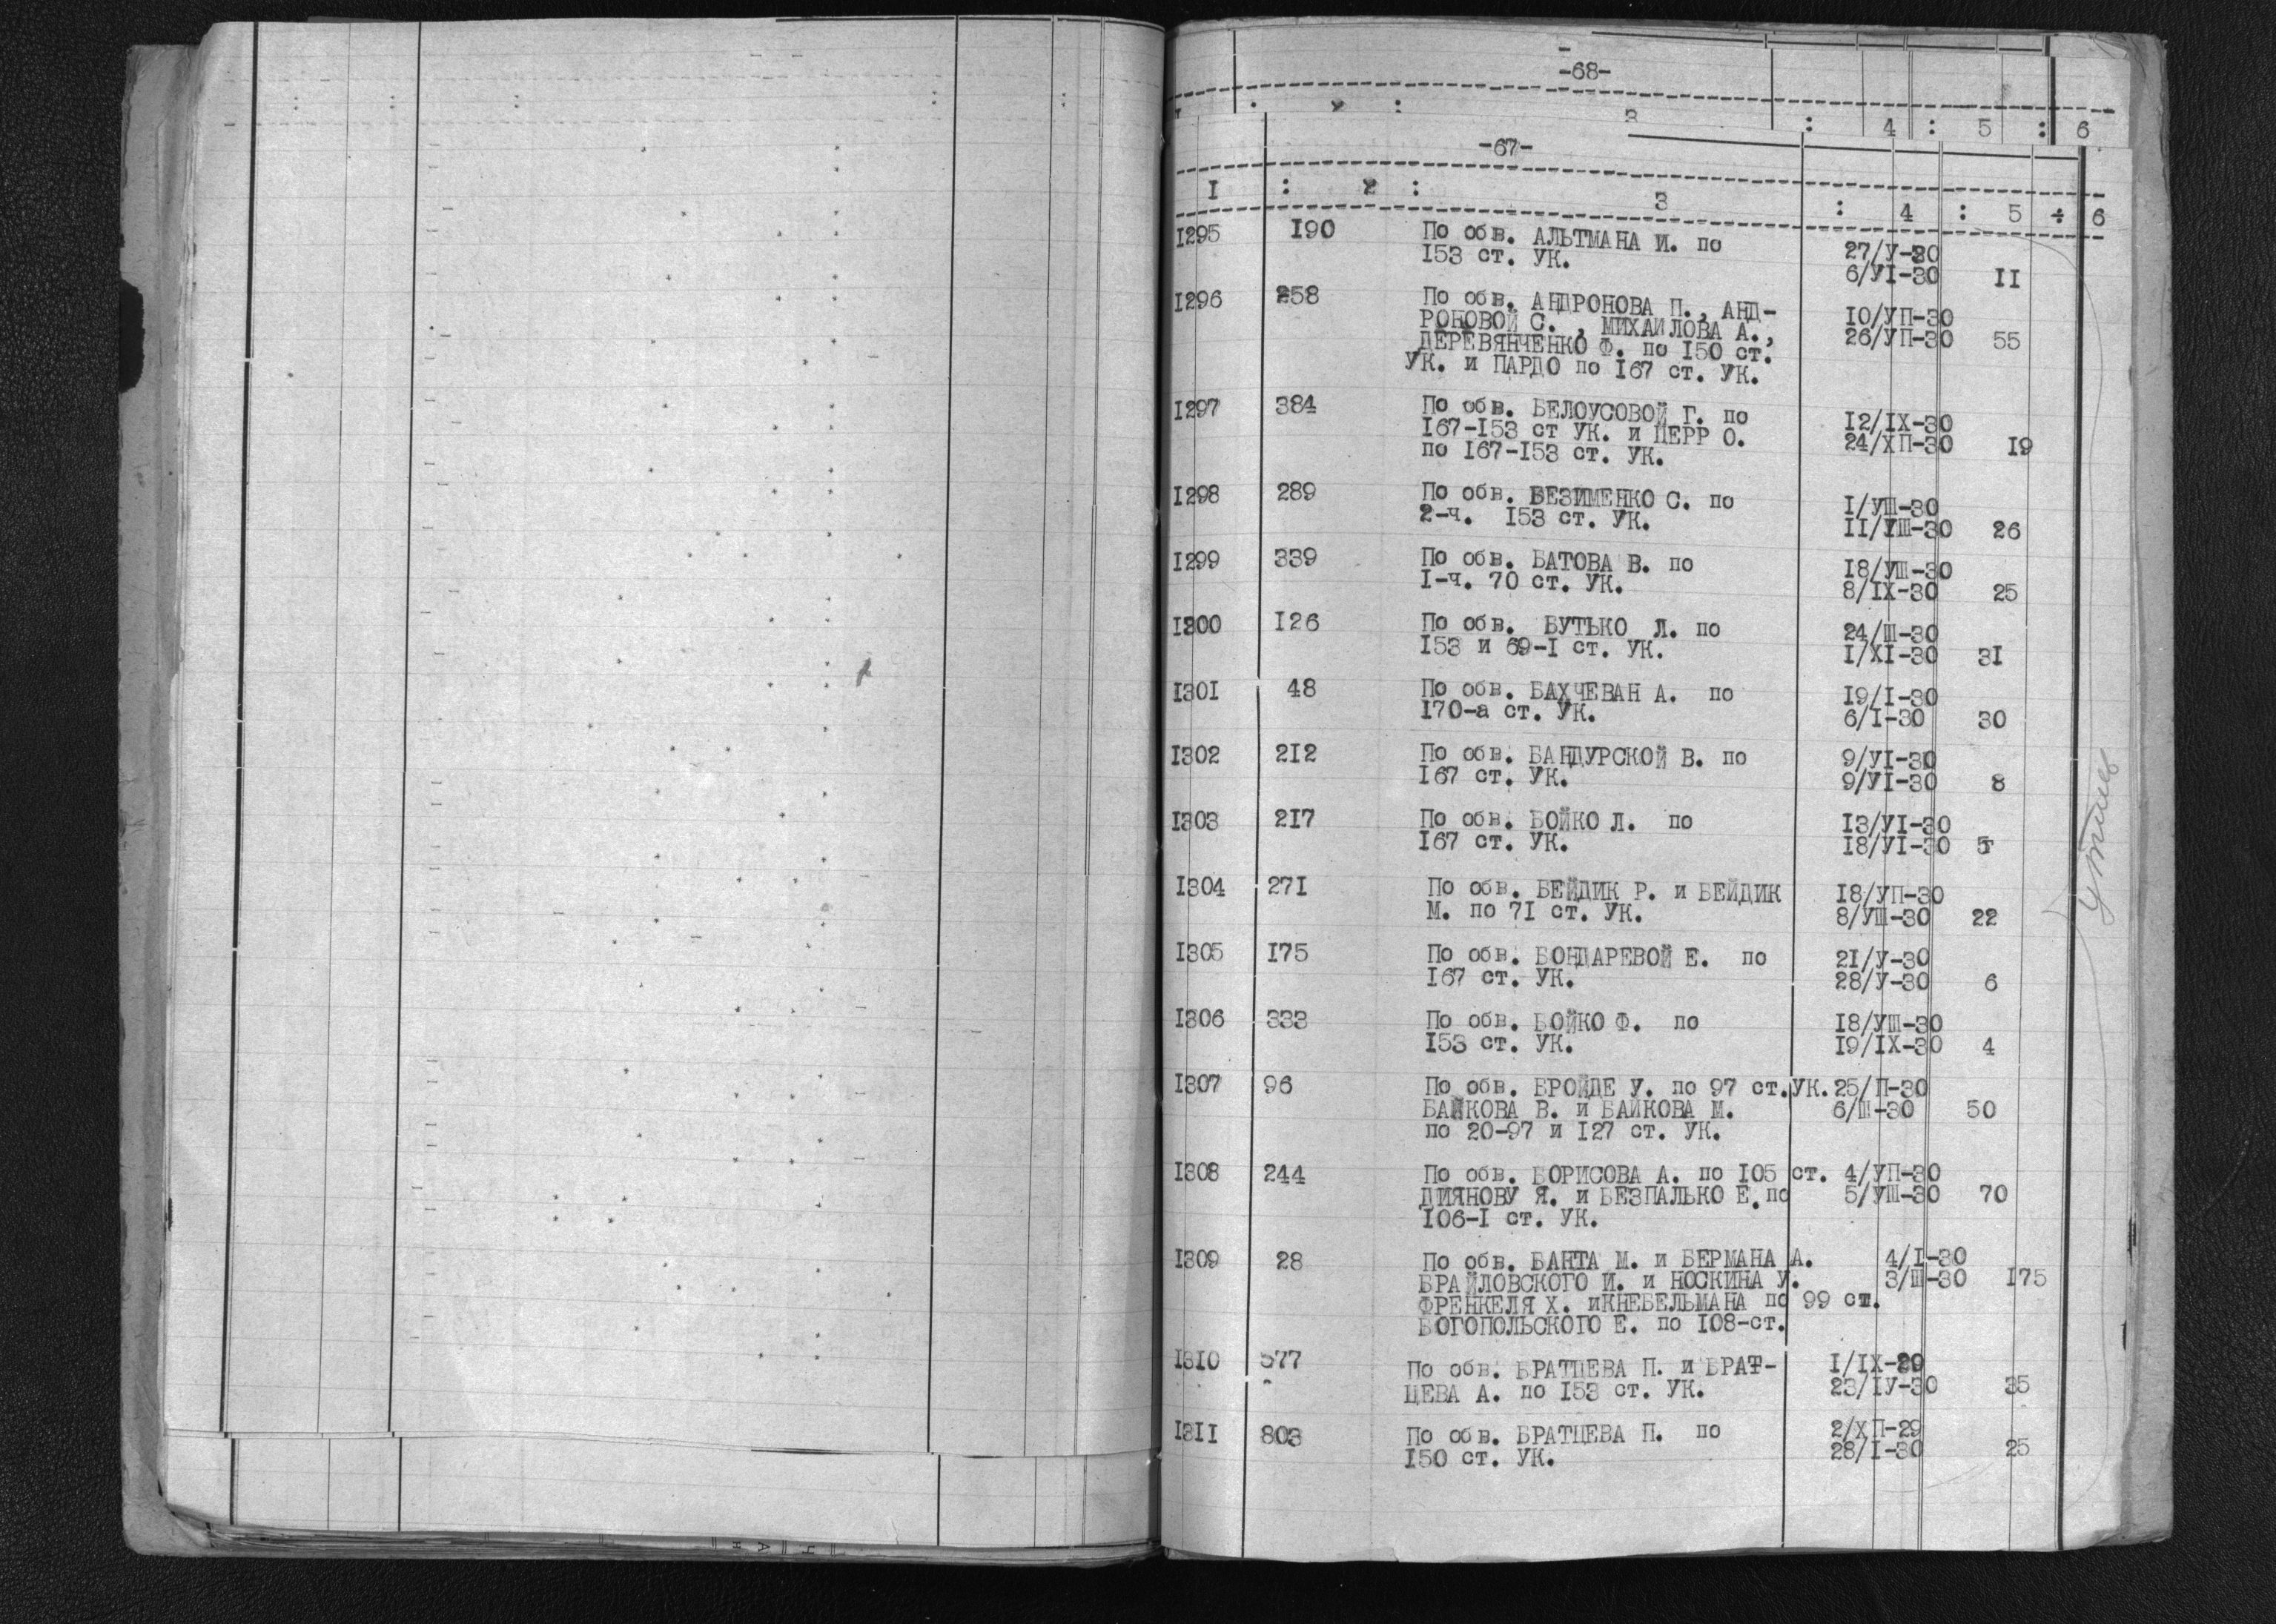 -68-
3 : 4 : 5 : 6
-67-
I : 2 : 3 : 4 : 5 : 6
I295 I90 По обв. АЛЬТМАНА И. по 27/У-30
I53 ст. УК. 6/УI-30 II
I296 258 По обв. АНДРОНОВА П., АНД- I0/УП-30
РОНОВОЙ С. , МИХАИЛОВА А., 26/УП-30 55
ДЕРЕВЯНЧЕНКО Ф. по I50 ст.
УК. и ПАРДО по I67 ст. УК.
I297 384 По обв. БЕЛОУСОВОЙ Г. по I2/IX-30
I67-I53 ст УК. и ЦЕРР О. 24/ХП-30 I9
по I67-I53 ст. УК.
I298 289 По обв. БЕЗИМЕНКО С. по I/УШ-30
2-ч. I53 ст. УК. II/УШ-30 26
I299 339 По обв. БАТОВА В. по I8/УШ-30
I-ч. 70 ст. УК. 8/IX-30 25
I300 I26 По обв. БУТЬКО Л. по 24/Ш-30
I53 и 69-I ст. УК. I/XI-30 3I
I30I 48 По обв. БАХЧЕВАН А. по I9/I-30
I70-а ст. УК. 6/I-30 30
I302 2I2 По обв. БАНДУРСКОЙ В. по 9/УI-30
I67 ст. УК. 9/УI-30 8
I303 2I7 По обв. БОЙКО Л. по I3/УI-30
I67 ст. УК. I8/УI-30 5
I304 27I По обв. БЕЙДИК Р. и БЕЙДИК I8/УП-30
М. по 7I ст. УК. 8/УШ-30 22
I305 I75 По обв. БОНДАРЕВОЙ Е. по 2I/У-30
I67 ст. УК. 28/У-30 6
I306 333 По обв. БОЙКО Ф. по I8/УШ-30
I53 ст. УК. I9/IX-30 4
I307 96 По обв. БРОЙДЕ У. по 97 ст.УК. 25/П-30
БАЙКОВА В. и БАЙКОВА М. 6/Ш-30 50
по 20-97 и I27 ст. УК.
I308 244 По обв. БОРИСОВА А. по I05 ст. 4/УП-30
ДИЯНОВУ Я. и БЕЗПАЛЬКО Е. по 5/УШ-30 70
I06-I ст. УК.
I309 28 По обв. БАНТА М. и БЕРМАНА А. 4/I-30
БРАЙЛОВСКОГО И. и НОСКИНА У. 3/Ш-30 I75
ФРЕНКЕЛЯ Х. иКНЕБЕЛЬМАНА по 99 ст.
БОГОПОЛЬСКОГО Е. по I08-ст.
I3I0 577 По обв. БРАТЦЕВА П. и БРАТ- I/IX-29
ЦЕВА А. по I53 ст. УК. 23/IУ-30 35
I3II 803 По обв. БРАТЦЕВА П. по 2/ХП-29
I50 ст. УК. 28/I-30 25